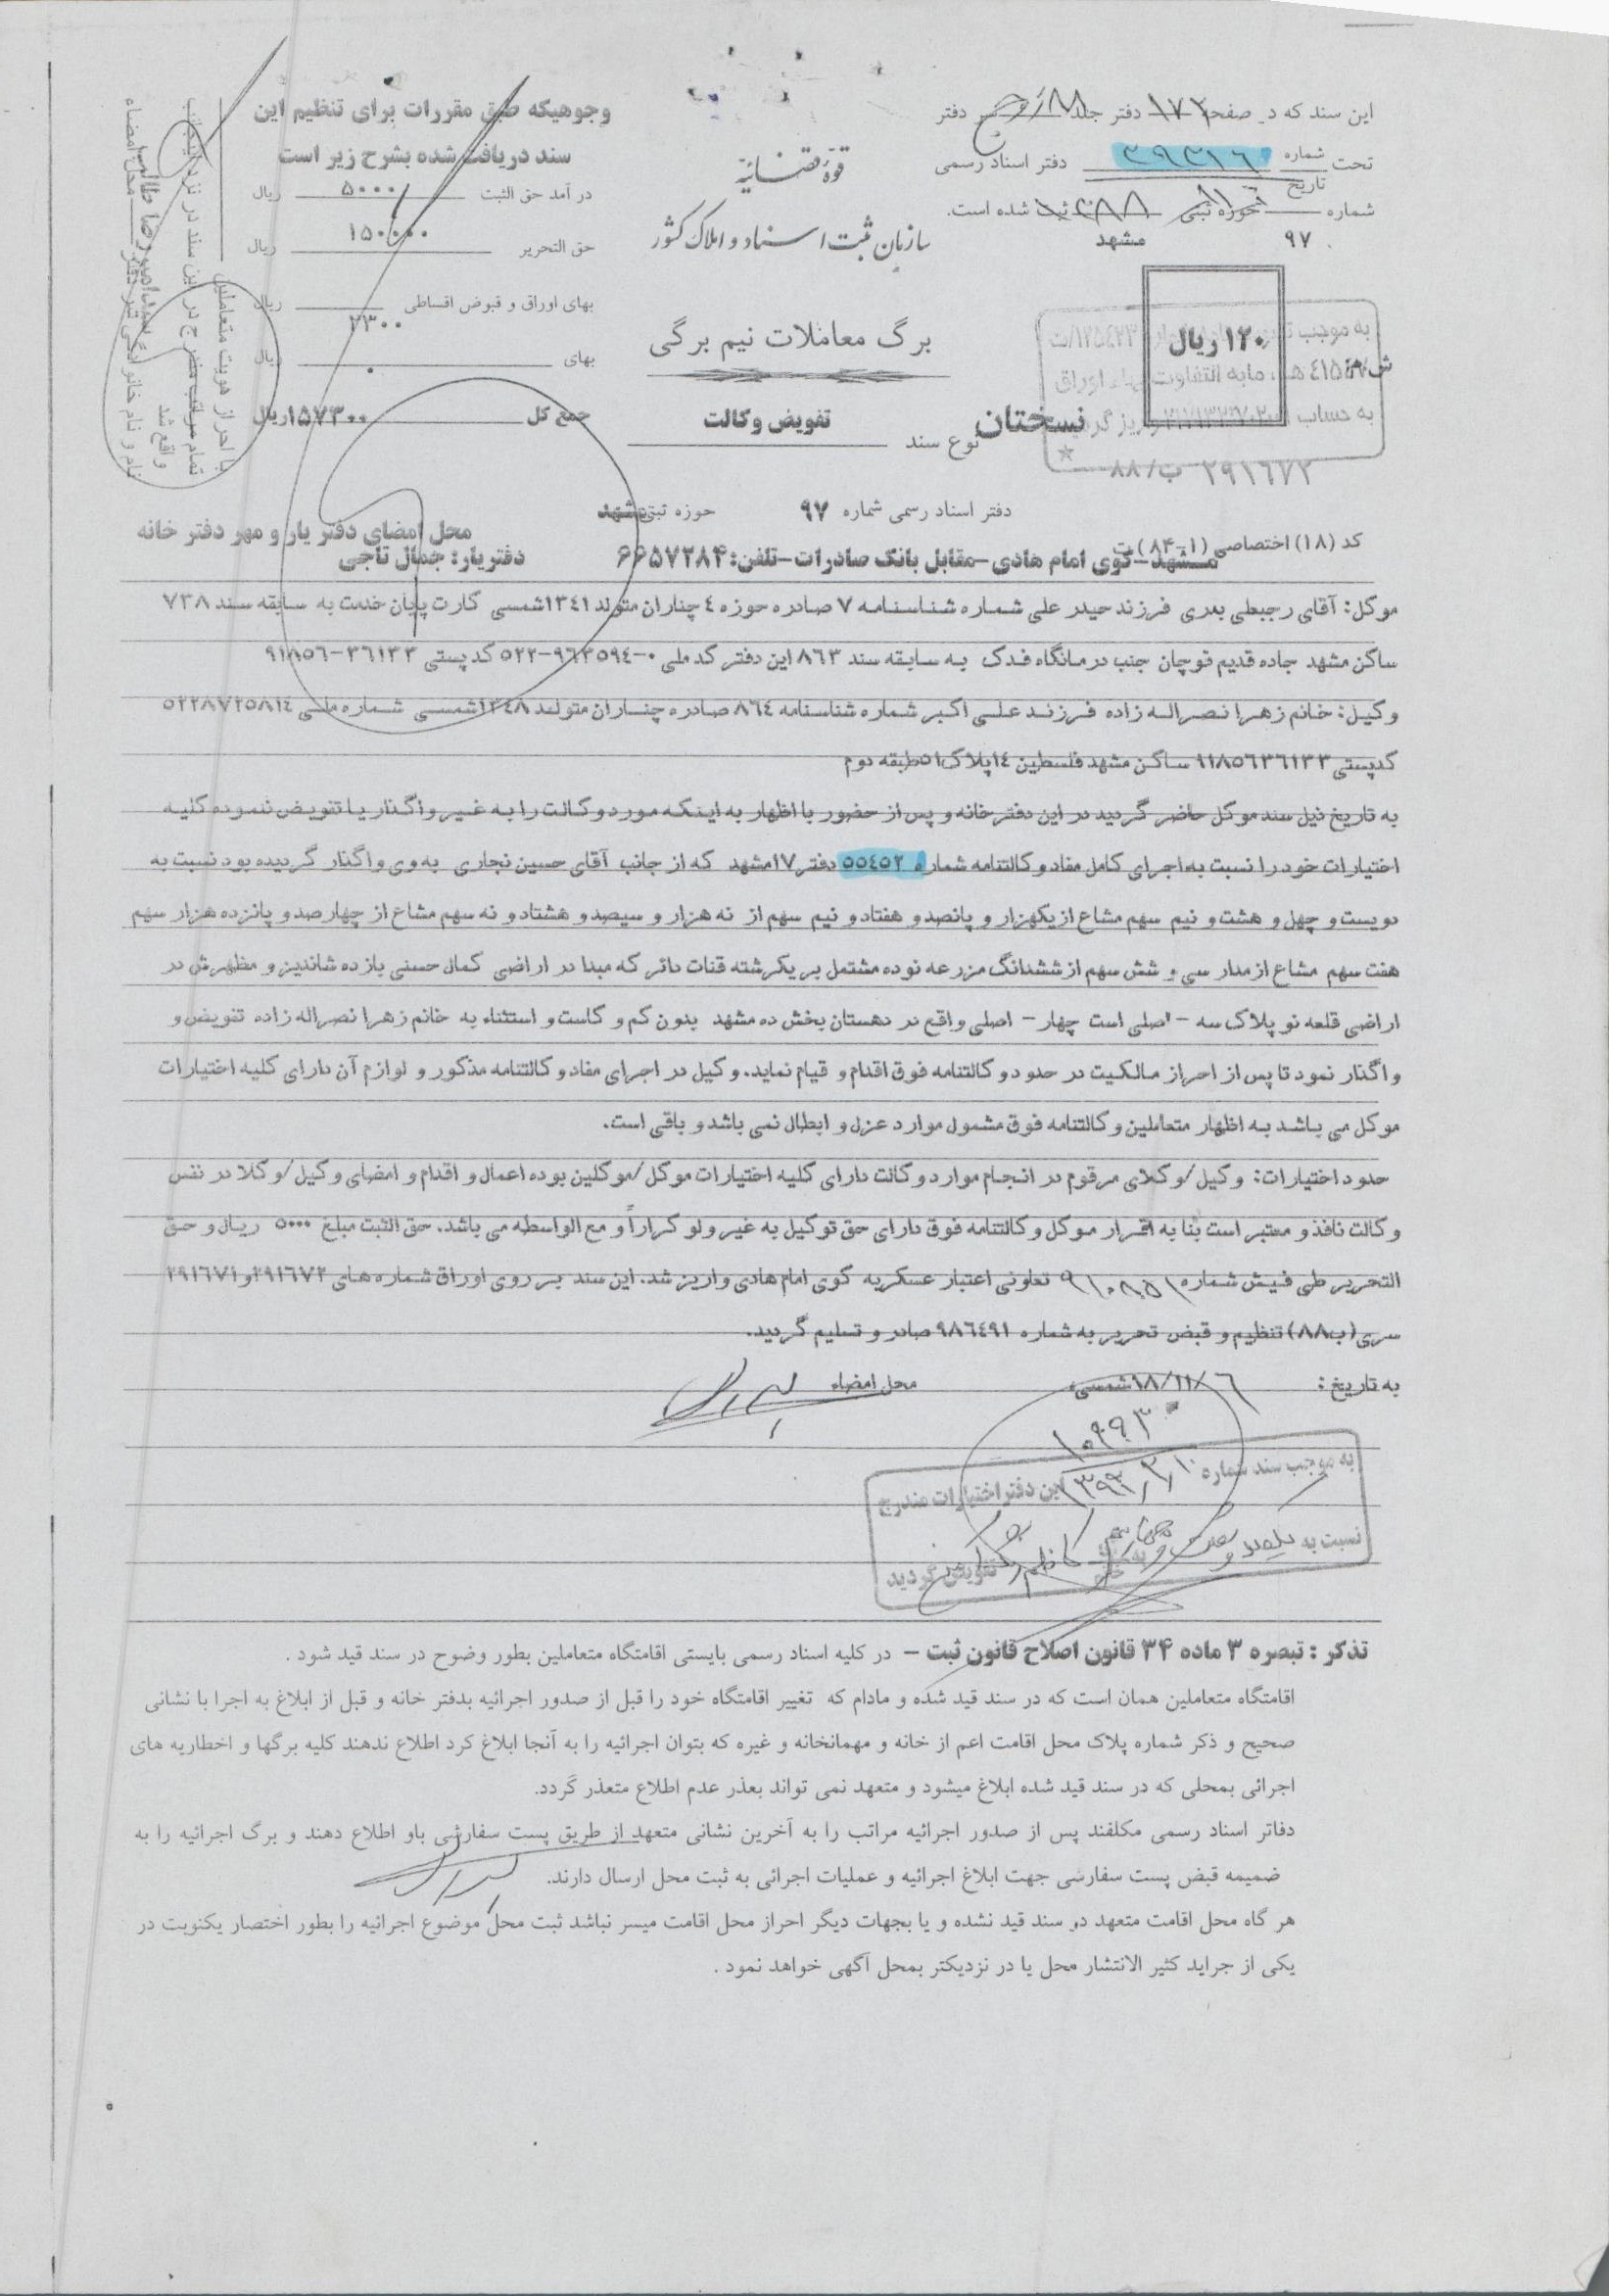 این سند که در صفحه ۱۷۲ دفتر جلد ۸۸ دفتر
تحت شماره ۲۹۳۱٦ دفتر اسناد رسمی
تاریخ
شماره حوزه ثبتی ثبت شده است.
۹۷ مشهد
قوه قضائیه
سازمان ثبت اسناد و املاک کشور
برگ معاملات نیم برگی
تفویض وکالت
نوع سند
وجوهیکه طبق مقررات برای تنظیم این
سند دریافت شده بشرح زیر است
در آمد حق الثبت ۵۰۰۰ ریال
حق التحریر ۱۵۰۰۰۰ ریال
بهای اوراق و قبوض اقساطی ریال
۲۳۰۰
بهای ریال
جمع کل ۱۵۷۳۰۰ریال
با احراز هویت متعاملین
تمام مراتب مندرج در این سند در نزد اینجانب
واقع شد
نام و نام خانوادگی سر دفتر محل امضاء
۱۲۰ ریال
به موجب
مابه التفاوت بهاء اوراق
به حساب واریز گردید
نسختان
۲۹۱٦۷۲ ب/۸۸
دفتر اسناد رسمی شماره ۹۷ حوزه ثبتی مشهد
محل امضای دفتر یار و مهر دفتر خانه
کد (۱۸) اختصاصی (۱-۸۴) ت
مشهد-کوی امام هادی-مقابل بانک صادرات-تلفن: ۶۶۵۷۲۸۴ دفتریار: جمال تاجی
موکل: آقای رجبعلی بدری فرزند حیدر علی شماره شناسنامه ۷ صادره حوزه ٤ چناران متولد ۱۳٤۱شمسی کارت پایان خدمت به سابقه سند ۷۳۸
ساکن مشهد جاده قدیم قوچان جنب درمانگاه فدک به سابقه سند ۸٦۳ این دفتر کد ملی ۰-۹٦۳۵۹٤-۵۲۲ کد پستی ۳٦۱۳۳-۹۱۸۵٦
وکیل: خانم زهرا نصراله زاده فرزند علی اکبر شماره شناسنامه ۸٦٤ صادره چناران متولد ۱۳٤۸شمسی شماره ملی ۵۲۲۸۷۲۵۸۱٤
کدپستی ۹۱۸۵٦۳٦۱۳۳ ساکن مشهد فلسطین ۱٤ پلاک ۵۱ طبقه دوم
به تاریخ ذیل سند موکل حاضر گردید در این دفترخانه و پس از حضور با اظهار به اینکه مورد وکالت را به غیر واگذار یا تفویض ننموده کلیه
اختیارات خود را نسبت به اجرای کامل مفاد وکالتنامه شماره ۵۵٤۵۲ دفتر ۱۷ مشهد که از جانب آقای حسین نجاری به وی واگذار گردیده بود نسبت به
دویست و چهل و هشت و نیم سهم مشاع از یکهزار و پانصد و هفتاد و نیم سهم از نه هزار و سیصد و هشتاد و نه سهم مشاع از چهارصد و پانزده هزار سهم
هفت سهم مشاع از مدار سی و شش سهم از ششدانگ مزرعه نوده مشتمل بر یکرشته قنات دائر که مبدا در اراضی کمال حسنی یازده شاندیز و مظهرش در
اراضی قلعه نو پلاک سه - اصلی است چهار- اصلی واقع در دهستان بخش ده مشهد بدون کم و کاست و استثناء به خانم زهرا نصراله زاده تفویض و
واگذار نمود تا پس از احراز مالکیت در حدود وکالتنامه فوق اقدام و قیام نماید. وکیل در اجرای مفاد وکالتنامه مذکور و لوازم آن دارای کلیه اختیارات
موکل می باشد به اظهار متعاملین وکالتنامه فوق مشمول موارد عزل و ابطال نمی باشد و باقی است.
حدود اختیارات: وکیل/وکلای مرقوم در انجام موارد وکالت دارای کلیه اختیارات موکل/موکلین بوده اعمال و اقدام و امضای وکیل/وکلا در نفس
وکالت نافذ و معتبر است بنا به اقرار موکل وکالتنامه فوق دارای حق توکیل به غیر ولو کراراً و مع الواسطه می باشد. حق الثبت مبلغ ۵۰۰۰ ریال و حق
التحریر طی فیش شماره ۹۱۰۸۵۱ تعاونی اعتبار عسکریه کوی امام هادی واریز شد. این سند بر روی اوراق شماره های ۲۹۱٦۷۲و ۲۹۱٦۷۱
سری(ب۸۸) تنظیم و قبض تحریر به شماره ۹۸٦٤۹۱ صادر و تسلیم گردید.
به تاریخ: ٦ /۱۱/ ۸۸شمسی محل امضاء
به موجب سند شماره این دفتر اختیارات مندرج
نسبت به تفویض گردید
تذکر : تبصره ۳ ماده ۳۴ قانون اصلاح قانون ثبت - در کلیه اسناد رسمی بایستی اقامتگاه متعاملین بطور وضوح در سند قید شود .
اقامتگاه متعاملین همان است که در سند قید شده و مادام که تغییر اقامتگاه خود را قبل از صدور اجرائیه بدفتر خانه و قبل از ابلاغ به اجرا با نشانی
صحیح و ذکر شماره پلاک محل اقامت اعم از خانه و مهمانخانه و غیره که بتوان اجرائیه را به آنجا ابلاغ کرد اطلاع ندهند کلیه برگها و اخطاریه های
اجرائی بمحلی که در سند قید شده ابلاغ میشود و متعهد نمی تواند بعذر عدم اطلاع متعذر گردد.
دفاتر اسناد رسمی مکلفند پس از صدور اجرائیه مراتب را به آخرین نشانی متعهد از طریق پست سفارشی باو اطلاع دهند و برگ اجرائیه را به
ضمیمه قبض پست سفارشی جهت ابلاغ اجرائیه و عملیات اجرائی به ثبت محل ارسال دارند.
هر گاه محل اقامت متعهد در سند قید نشده و یا بجهات دیگر احراز محل اقامت میسر نباشد ثبت محل موضوع اجرائیه را بطور اختصار یکنوبت در
یکی از جراید کثیر الانتشار محل یا در نزدیکتر بمحل آگهی خواهد نمود .